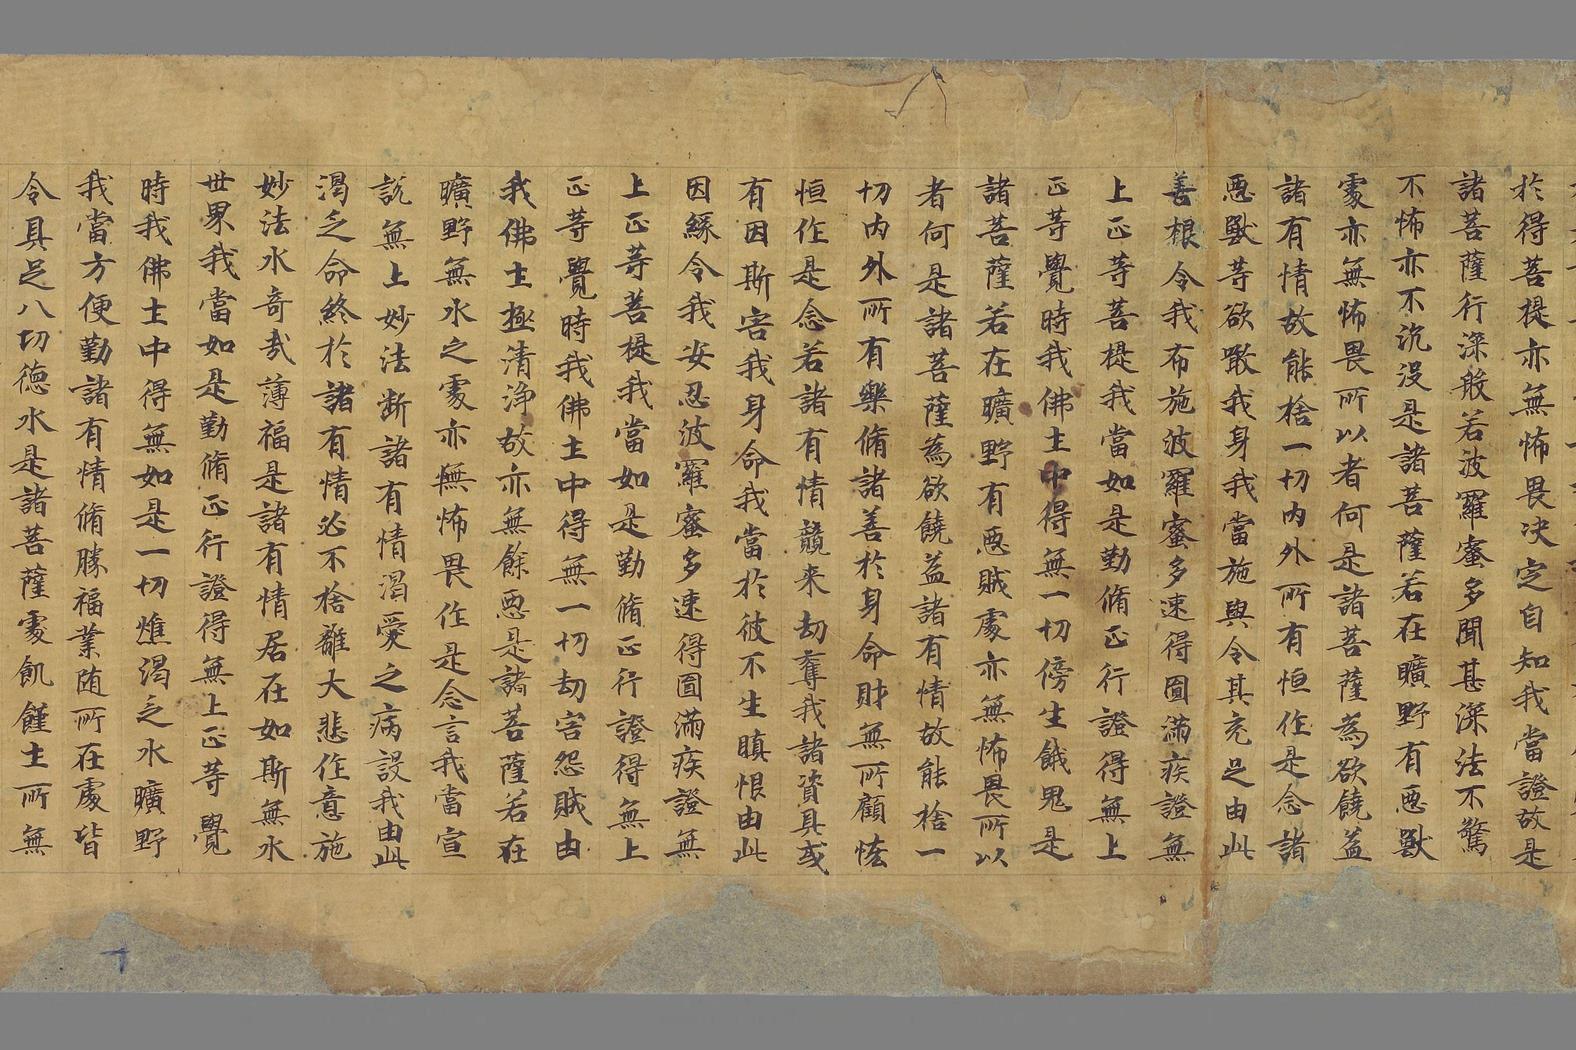 於得菩提亦無怖畏决定自知我當證故是
諸菩薩行深般若波羅蜜多聞甚深法不驚
不怖亦不沉沒是諸菩薩若在曠野有惡獸
處亦無怖畏所以者何是諸菩薩為欲饒益
諸有情故能捨一切内外所有恒作是念諸
惡獸等欲噉我身我當施與令其充足由此
善根令我布施波羅蜜多速得圓滿疾證無
上正等菩提我當如是勤脩正行證得無上
正等覺時我佛土中得無一切傍生餓鬼是
諸菩薩若在曠野有惡賊處亦無怖畏所以
者何是諸菩薩為欲饒益諸有情故能捨一
切内外所有樂脩諸善於身命財無所顧恡
恒作是念若諸有情競来劫奪我諸資具或
有因斯害我身命我當於彼不生瞋恨由此
因緣令我安忍波羅蜜多速得圓滿疾證無
上正等菩提我當如是勤脩正行證得無上
正等覺時我佛土中得無一切劫害怨賊由
我佛土極清淨故亦無餘惡是諸菩薩若在
曠野無水之處亦無怖畏作是念言我當宣
說無上妙法斷諸有情渴愛之病設我由此
渴乏命終於諸有情必不捨離大悲作意施
妙法水奇哉薄福是諸有情居在如斯無水
世界我當如是勤脩正行證得無上正等覺
時我佛土中得無如是一切燋渴乏水曠野
我當方便勤諸有情脩勝福業随所在處皆
令具足八切德水是諸菩薩處飢饉土所無